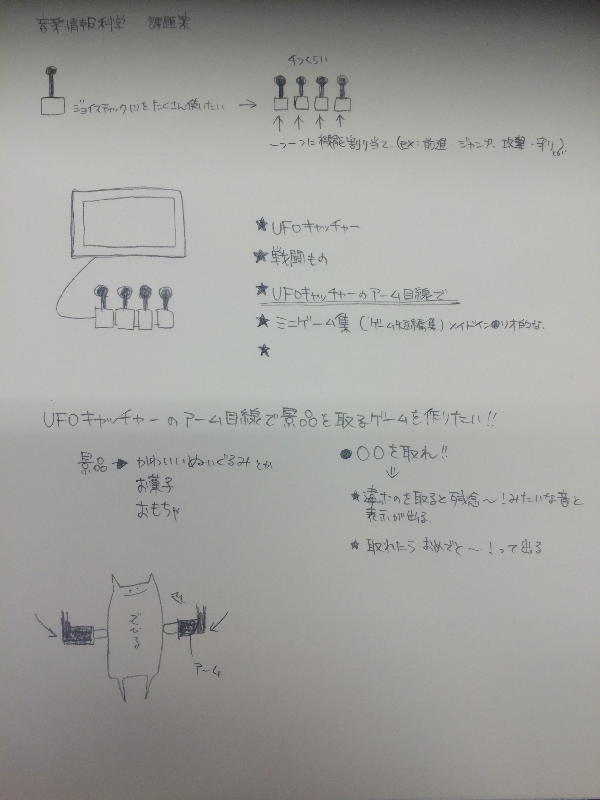 音楽情報科学 課題案
4つくらい
ジョイスティック(1)をたくさん使いたい →
一つ一つに機能割り当て (ex: 前進・ジャンプ、攻撃・守り)
★ UFOキャッチャー
★ 戦闘もの
★ UFOキャッチャーのアーム目線で
★ ミニゲーム集 (ゲーム短編集) メイドイン●リオ的な、
★
UFOキャッチャーのアーム目線で景品を取るゲームを作りたい!!
景品 → かわいいぬいぐるみとか
お菓子
おもちゃ
●○○を取れ!!
★ 違たのを取ると残念〜!みたいな音と
表示が出る
★ 取れたら おめでと〜!って出る
でびる
アーム